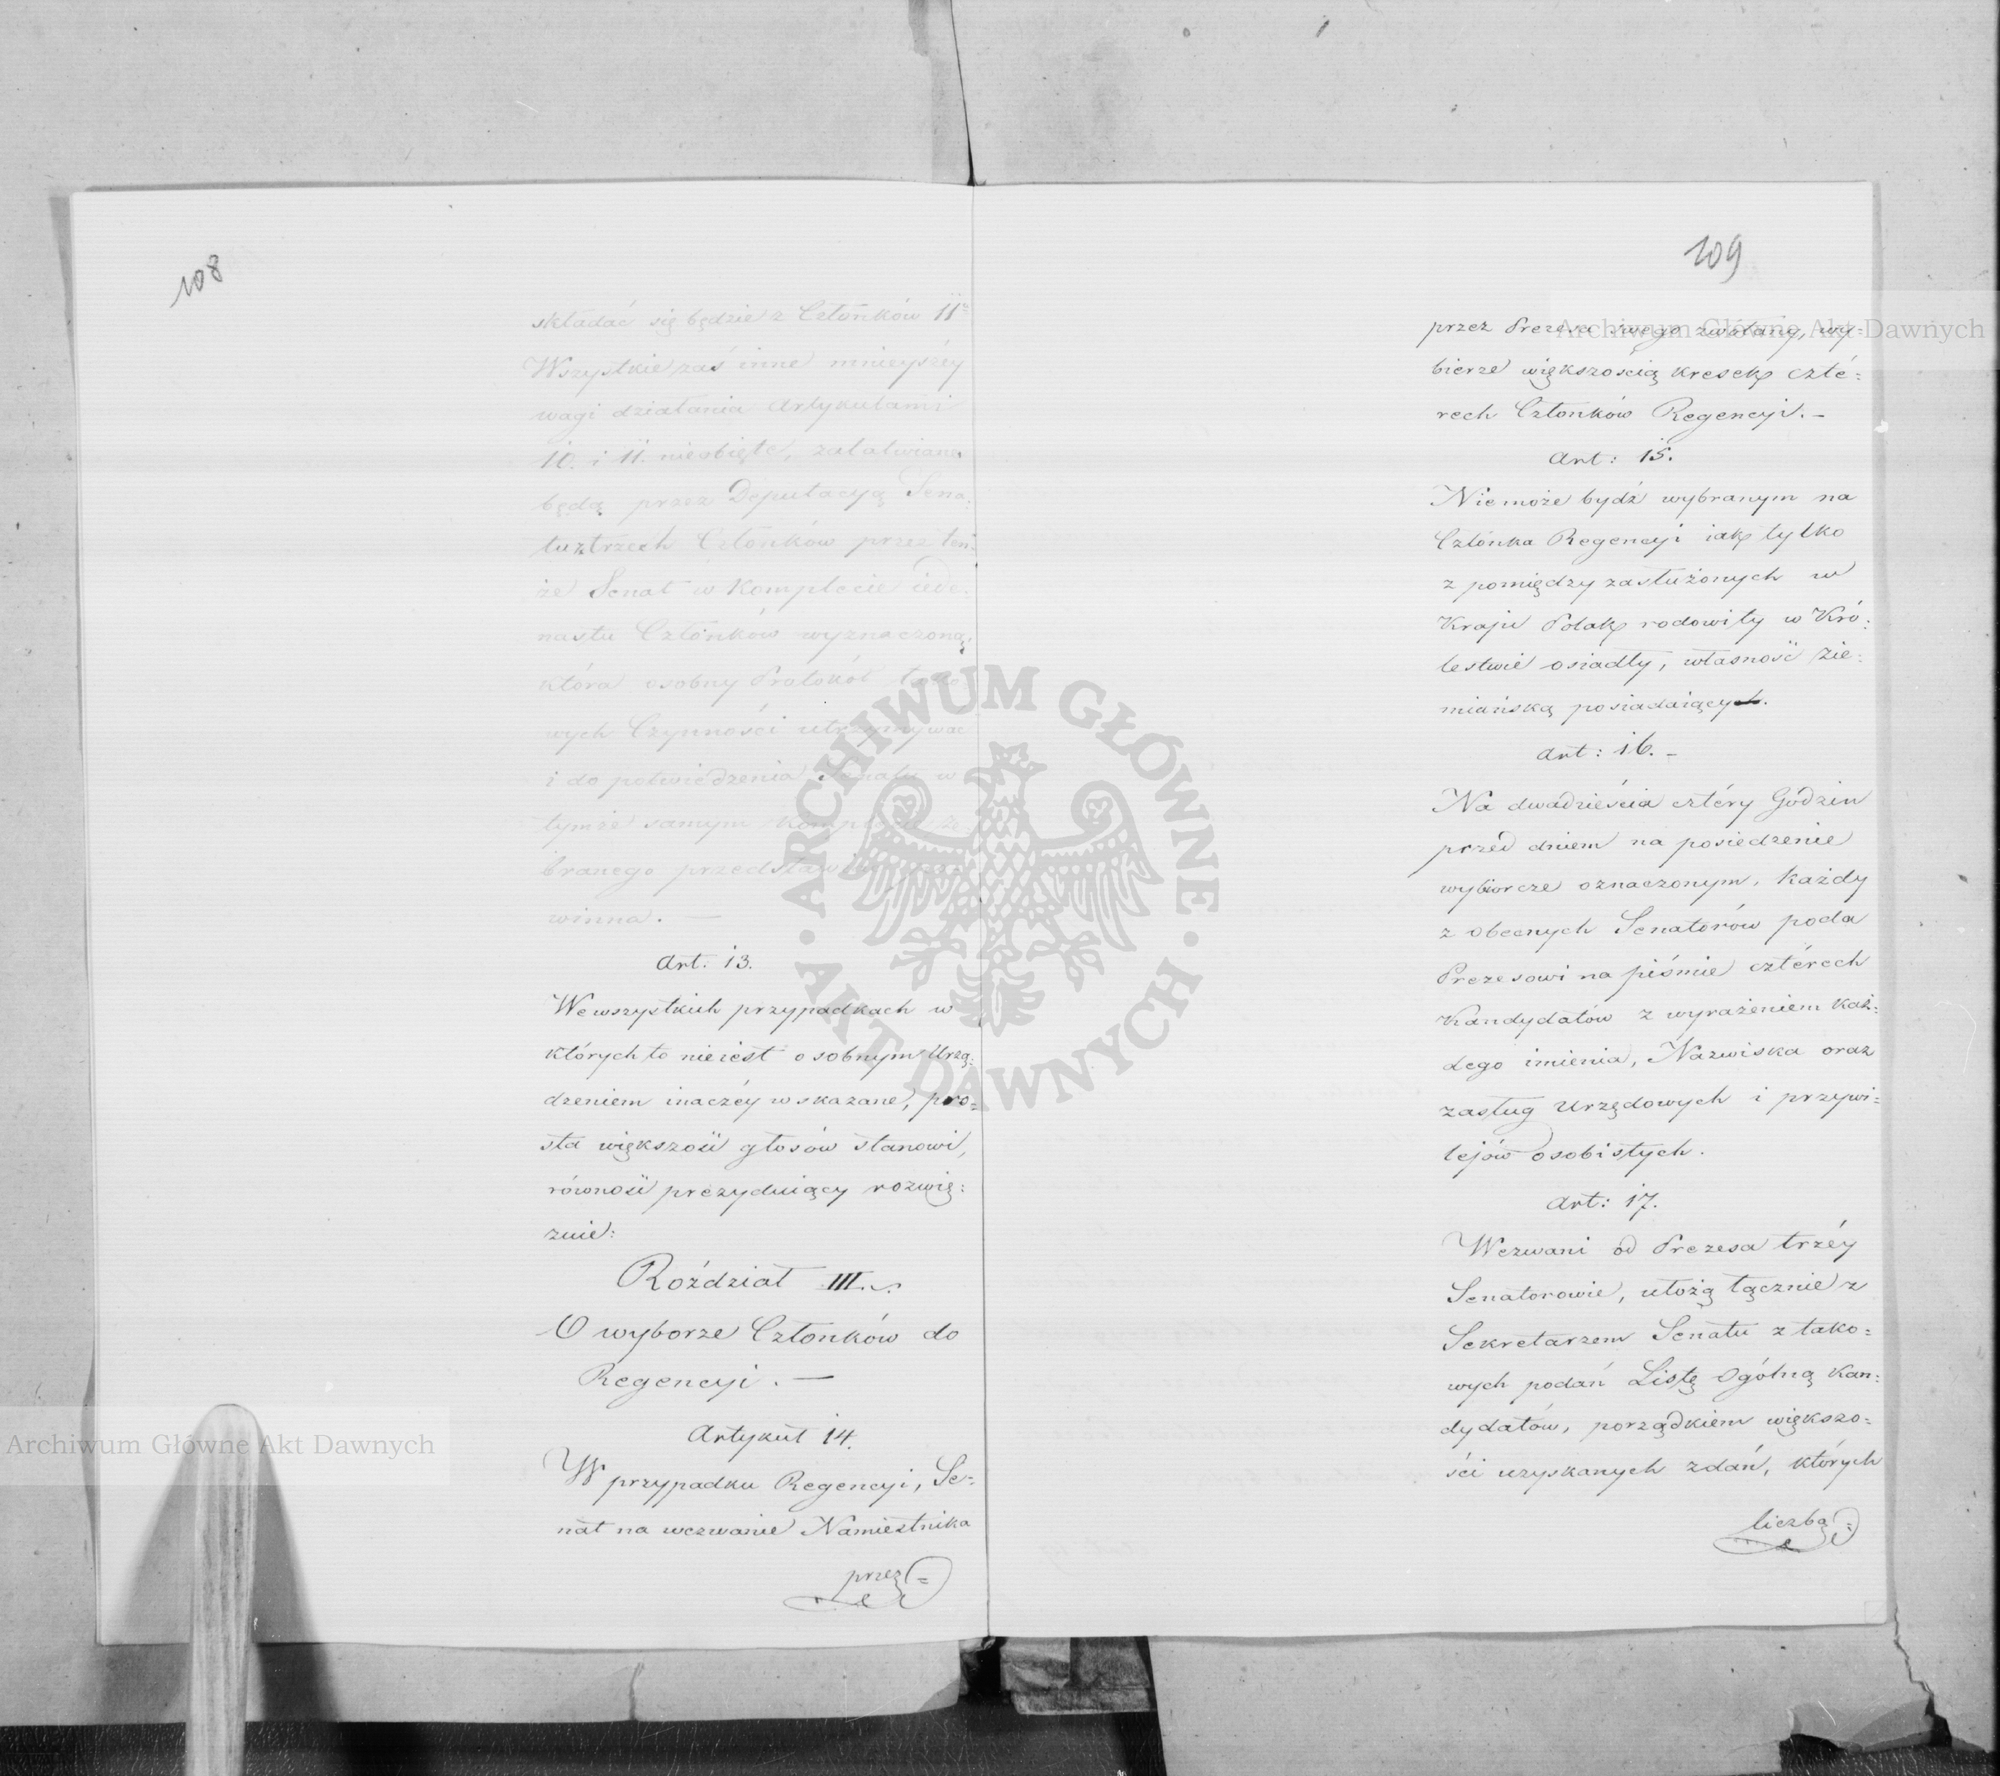 108
składać się będzie z Członków 11ᵘ
Wszystkie zaś inne mnieyszéy
wagi działania Artykułami
10. i 11. nieobięte, załatwiane
będą przez Deputacyą Sena=
tu z trzech Członków przez ten=
że Senat w Komplecie iede=
nastu Członków wyznaczoną,
która osobny Protokół tako=
wych Czynności utrzymywać
i do potwierdzenia Senatu w
tymże samym Komplecie ze=
branego przedstawiać po=
winna. —
Art. 13.
We wszystkich przypadkach w
których to nie iest osobnym Urzą=
dzeniem inaczéy wskazane, pro=
sta większość głosów stanowi,
równość prezyduiący rozwią=
zuie:
Rozdział III.
O wyborze Członków do
Regencyi. —
Artykuł 14.
W przypadku Regencyi, Se=
nat na wezwanie Namiestnika
przez=
109
przez Prezesa swego zwołany, wy=
bierze większością kresek czté=
rech Członków Regencyi. —
Art: 15.
Nie może bydź wybranym na
Członka Regencyi iak tylko
z pomiędzy zasłużonych w
Kraju Polak rodowity w Kró=
lestwie osiadły, własność zie=
miańską posiadaiący.
Art: 16. —
Na dwadzieścia cztéry Godzin
przed dniem na posiedzenie
wybiorcze oznaczonym, każdy
z obecnych Senatorów poda
Prezesowi na piśmie cztérech
Kandydatów z wyrażeniem każ=
dego imienia, Nazwiska oraz
zasług Urzędowych i przywi=
lejów osobistych.
Art: 17.
Wezwani od Prezesa trzéy
Senatorowie, ułożą łącznie z
Sekretarzem Senatu z tako=
wych podań Listę Ogólną Kan=
dydatów, porządkiem większo=
ści uzyskanych zdań, których
liczba=
ARCHIWUM GŁÓWNE • AKT DAWNYCH •
Archiwum Główne Akt Dawnych
Archiwum Główne Akt Dawnych